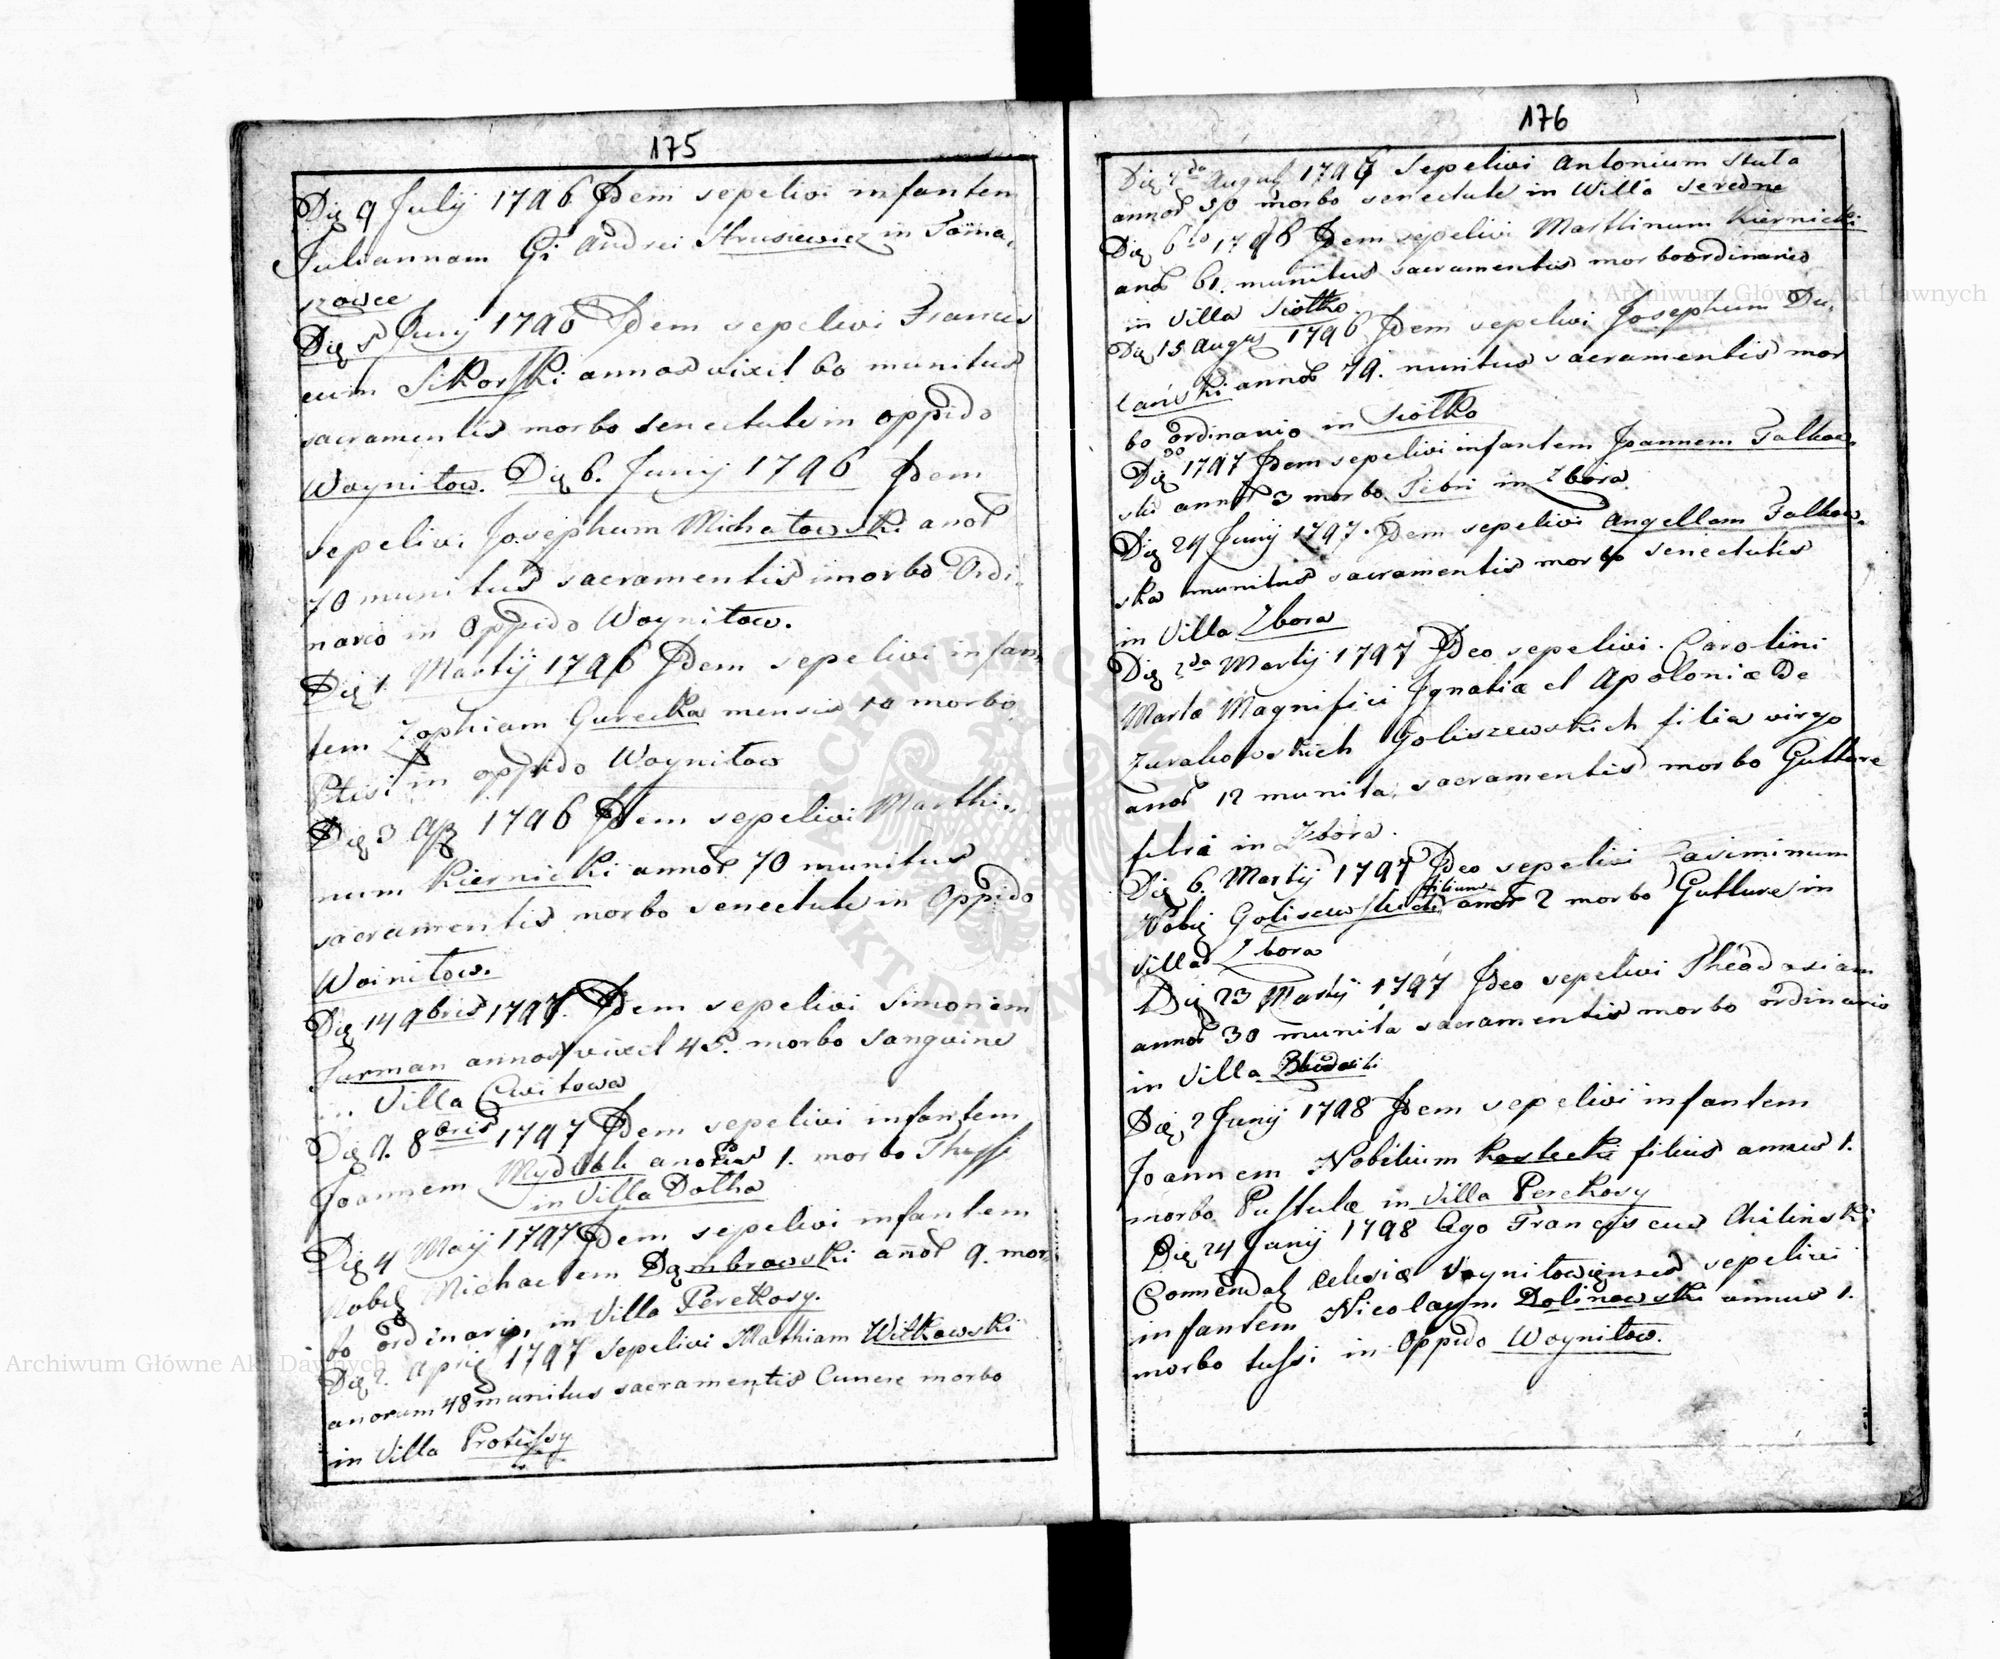 175
Die 9 July 1796 Idem sepelivi infantem
Juliannam Gi Andrei Strusiewicz in Toma,
szowce
Die 5 Juny 1796 Idem sepelivi Francis
cum Sikorski annos vixit 60 munitus
sacramentis morbo senectute in oppido
Woynitow. Die 6. Junij 1796 Idem
sepelivi Josephum Michatowski anor
70 munitus sacramentis morbo Ordi,
nario in Oppido Woynitow.
Die 1. Martij 1796 Idem sepelivi infan,
tem Zophiam Gurecka mensis 10 morbo
Ptisi in oppido Woynitow
Die 3 1796 Idem sepelivi Marthi,,
num Kiernicki annor 70 munitus
sacramentis morbo senectute in Oppido
Woinitow.
Die 14 9bris 1797. Idem sepelivi Simonem
Furman annos vixit 45. morbo sanguine
in Villa Cwitowa
Die 9. 8bris 1797 Idem sepelivi infantem
Joannem 1. morbo
in Villa Dotha
Die 4 Maij 1797 Idem sepelivi infantem
Nobil Michaelem Dąmbrowski anor 9. mor,
bo ordinario, in Villa Perekosy.
Die 2. April 1797 Sepelivi Mathiam Witkowski
anorum 48 munitus sacramentis morbo
in Villa
176
Die Augus 1796 Sepelivi Antonium Stuta
annor 50 morbo senectute in Willa Seredne
Die 6to 1796 Idem sepelivi Marthinum Kiernicki
anor 61. munitus sacramentis morbo ordinario
in Villa Siotko.
Die 15 Augus 1796 Idem sepelivi Josephum Du,
lański annor 79. munitus sacramentis mor
bo ordinario in Siotko
Die 1797 Idem sepelivi infantem Joannem Falkow,
ski annor 3 morbo Febri in Zbora
Die 24 Junij 1797. Idem sepelivi Angellam Falkow,
ska munitus sacramentis morbo senectutis
in Villa Zbora
Die 2da Martij 1797 Ideo sepelivi. Carolini
Marta Magnifici Ignatiæ et Apoloniæ De
Zurakowskich Goliszewskich filia virgo
anor 12 munita, sacramentis morbo Gutture
febri in Zbora.
Die 6. Martij 1797 Ideo sepelivi Casiminum
filium
Nobil Goliszewskich anor 2 morbo Gutture in
Villa Zbora
Die 23 Martij 1797 Ideo sepelivi Theodosiam
annor 30 munita sacramentis morbo ordinario
in Villa
Die 2 Junij 1798 Idem sepelivi infantem
Joannem Nobilium filius annus 1.
morbo Pustulæ in Villa Perekosy
Die 24 Junij 1798 Ego Franciscus Chilinski
Commendat Woynitowiensis sepelivi
infantem Nicolaum. Dolinowski annus 1.
morbo tussi in Oppido Woynitow.